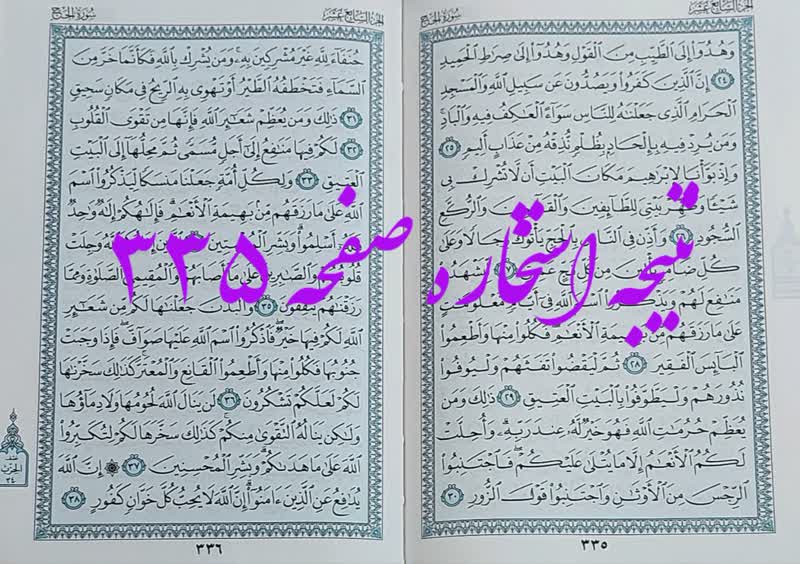 سُورَةُ الحَجِّ الجُزْءُ السَّابِعَ عَشَرَ
وَهُدُوٓاْ إِلَى ٱلطَّيِّبِ مِنَ ٱلْقَوْلِ وَهُدُوٓاْ إِلَىٰ صِرَٰطِ ٱلْحَمِيدِ
٢٤ إِنَّ ٱلَّذِينَ كَفَرُواْ وَيَصُدُّونَ عَن سَبِيلِ ٱللَّهِ وَٱلْمَسْجِدِ
ٱلْحَرَامِ ٱلَّذِى جَعَلْنَٰهُ لِلنَّاسِ سَوَآءً ٱلْعَٰكِفُ فِيهِ وَٱلْبَادِ
وَمَن يُرِدْ فِيهِ بِإِلْحَادٍۭ بِظُلْمٍ نُّذِقْهُ مِنْ عَذَابٍ أَلِيمٍ ٢٥
وَإِذْ بَوَّأْنَا لِإِبْرَٰهِيمَ مَكَانَ ٱلْبَيْتِ أَن لَّا تُشْرِكْ بِى
شَيْـًٔا وَطَهِّرْ بَيْتِىَ لِلطَّآئِفِينَ وَٱلْقَآئِمِينَ وَٱلرُّكَّعِ
ٱلسُّجُودِ ٢٦ وَأَذِّن فِى ٱلنَّاسِ بِٱلْحَجِّ يَأْتُوكَ رِجَالًا وَعَلَىٰ
كُلِّ ضَامِرٍ يَأْتِينَ مِن كُلِّ فَجٍّ عَمِيقٍ ٢٧ لِّيَشْهَدُواْ
مَنَٰفِعَ لَهُمْ وَيَذْكُرُواْ ٱسْمَ ٱللَّهِ فِىٓ أَيَّامٍ مَّعْلُومَٰتٍ
عَلَىٰ مَا رَزَقَهُم مِّنۢ بَهِيمَةِ ٱلْأَنْعَٰمِ فَكُلُواْ مِنْهَا وَأَطْعِمُواْ
ٱلْبَآئِسَ ٱلْفَقِيرَ ٢٨ ثُمَّ لْيَقْضُواْ تَفَثَهُمْ وَلْيُوفُواْ
نُذُورَهُمْ وَلْيَطَّوَّفُواْ بِٱلْبَيْتِ ٱلْعَتِيقِ ٢٩ ذَٰلِكَ وَمَن
يُعَظِّمْ حُرُمَٰتِ ٱللَّهِ فَهُوَ خَيْرٌ لَّهُۥ عِندَ رَبِّهِۦ وَأُحِلَّتْ
لَكُمُ ٱلْأَنْعَٰمُ إِلَّا مَا يُتْلَىٰ عَلَيْكُمْ فَٱجْتَنِبُواْ
ٱلرِّجْسَ مِنَ ٱلْأَوْثَٰنِ وَٱجْتَنِبُواْ قَوْلَ ٱلزُّورِ ٣٠
٣٣٥
الجُزْءُ السَّابِعَ عَشَرَ سُورَةُ الحَجِّ
حُنَفَآءَ لِلَّهِ غَيْرَ مُشْرِكِينَ بِهِۦ وَمَن يُشْرِكْ بِٱللَّهِ فَكَأَنَّمَا خَرَّ مِنَ
ٱلسَّمَآءِ فَتَخْطَفُهُ ٱلطَّيْرُ أَوْ تَهْوِى بِهِ ٱلرِّيحُ فِى مَكَانٍ سَحِيقٍ
٣١ ذَٰلِكَ وَمَن يُعَظِّمْ شَعَٰٓئِرَ ٱللَّهِ فَإِنَّهَا مِن تَقْوَى ٱلْقُلُوبِ
٣٢ لَكُمْ فِيهَا مَنَٰفِعُ إِلَىٰٓ أَجَلٍ مُّسَمًّى ثُمَّ مَحِلُّهَآ إِلَى ٱلْبَيْتِ
ٱلْعَتِيقِ ٣٣ وَلِكُلِّ أُمَّةٍ جَعَلْنَا مَنسَكًا لِّيَذْكُرُواْ ٱسْمَ
ٱللَّهِ عَلَىٰ مَا رَزَقَهُم مِّنۢ بَهِيمَةِ ٱلْأَنْعَٰمِ فَإِلَٰهُكُمْ إِلَٰهٌ وَٰحِدٌ
فَلَهُۥٓ أَسْلِمُواْ وَبَشِّرِ ٱلْمُخْبِتِينَ ٣٤ ٱلَّذِينَ إِذَا ذُكِرَ ٱللَّهُ وَجِلَتْ
قُلُوبُهُمْ وَٱلصَّٰبِرِينَ عَلَىٰ مَآ أَصَابَهُمْ وَٱلْمُقِيمِى ٱلصَّلَوٰةِ وَمِمَّا
رَزَقْنَٰهُمْ يُنفِقُونَ ٣٥ وَٱلْبُدْنَ جَعَلْنَٰهَا لَكُم مِّن شَعَٰٓئِرِ
ٱللَّهِ لَكُمْ فِيهَا خَيْرٌ فَٱذْكُرُواْ ٱسْمَ ٱللَّهِ عَلَيْهَا صَوَآفَّ فَإِذَا وَجَبَتْ
جُنُوبُهَا فَكُلُواْ مِنْهَا وَأَطْعِمُواْ ٱلْقَانِعَ وَٱلْمُعْتَرَّ كَذَٰلِكَ سَخَّرْنَٰهَا
لَكُمْ لَعَلَّكُمْ تَشْكُرُونَ ٣٦ لَن يَنَالَ ٱللَّهَ لُحُومُهَا وَلَا دِمَآؤُهَا
وَلَٰكِن يَنَالُهُ ٱلتَّقْوَىٰ مِنكُمْ كَذَٰلِكَ سَخَّرَهَا لَكُمْ لِتُكَبِّرُواْ
ٱللَّهَ عَلَىٰ مَا هَدَىٰكُمْ وَبَشِّرِ ٱلْمُحْسِنِينَ ٣٧ ۞ إِنَّ ٱللَّهَ
يُدَٰفِعُ عَنِ ٱلَّذِينَ ءَامَنُوٓاْ إِنَّ ٱللَّهَ لَا يُحِبُّ كُلَّ خَوَّانٍ كَفُورٍ ٣٨
نصف
الحزب
٣٤
٣٣٦
نتیجه استخاره صفحه ۳۳۵